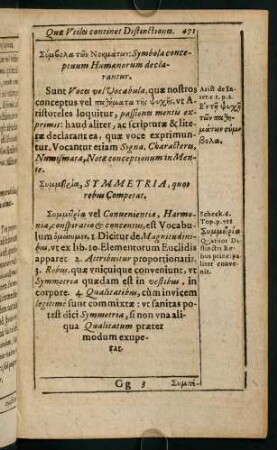 Quæ Vtiles continet Distinctiones. 471
Σύμβολα τῶν Νοημάτων: Symbola conce-
ptuum Humanorum decla-
rantur.
Sunt Voces vel Vocabula, quæ nostros
conceptus vel παθήματα τῆς ψυχῆς, vt A-
ristoteles loquitur, passiones mentis expri-
mit: haud aliter, ac scripturæ & lite-
ræ declarant ea, quæ voce exprimun-
tur. Vocantur etiam Signa, Characteres,
Numismata, Notæ conceptionum in Men-
te.
Arist. de In-
ter. c. 1. p. 2.
Ἐν τῇ ψυχῇ
τῶν παθη-
μάτων σύμ-
βολα.
Συμμετρία, SYMMETRIA, quot
rebus Competat.
Συμμετρία vel Convenientia, Harmo-
nia, conspiratio & concentus, est Vocabu-
lum ὁμώνυμον. 1. Dicitur de Magnitudini-
bus, vt ex lib. 10. Elementorum Euclidis
apparet 2. Attribuitur proportionatis.
3. Rebus, quæ vnicuique conveniunt, vt
Symmetria quædam est in vestibus, in
corpore. 4. Qualitatibus, cùm invicem
legitimè sunt commixtæ: vt sanitas po-
test dici Symmetria, si non vna ali-
qua Qualitatum præter
modum exupe-
rat.
Scheck. 6.
Top. p. 128
Συμμετρία
Quatuor Di-
stinctis Re-
bus princi-
paliter conve-
nit.
Gg 3
Συμπά-